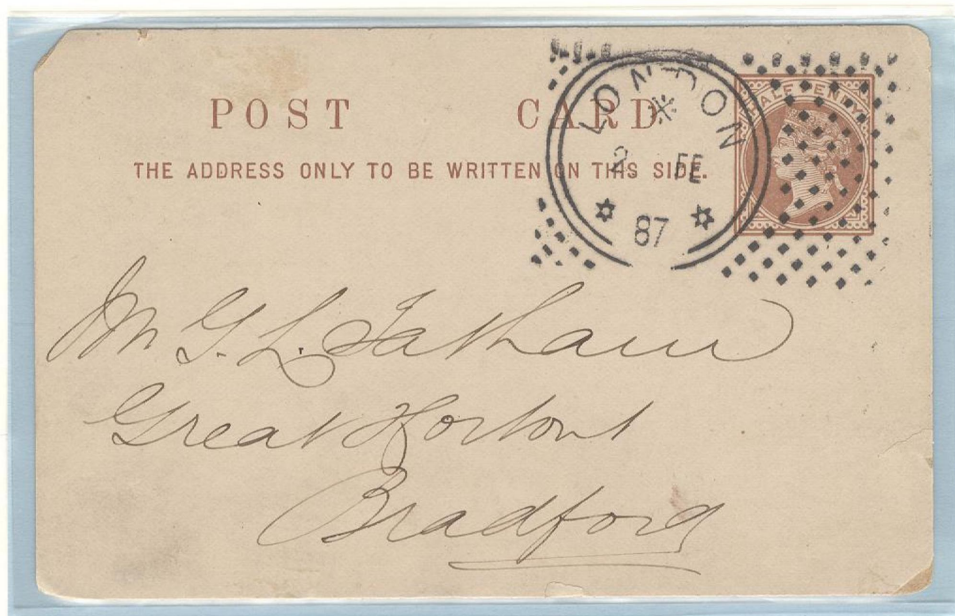 POST CARD
THE ADDRESS ONLY TO BE WRITTEN ON THIS SIDE.
HALF PENNY
LONDON
2 FE
87
Mr G. L. Tatham
Great Horton
Bradford